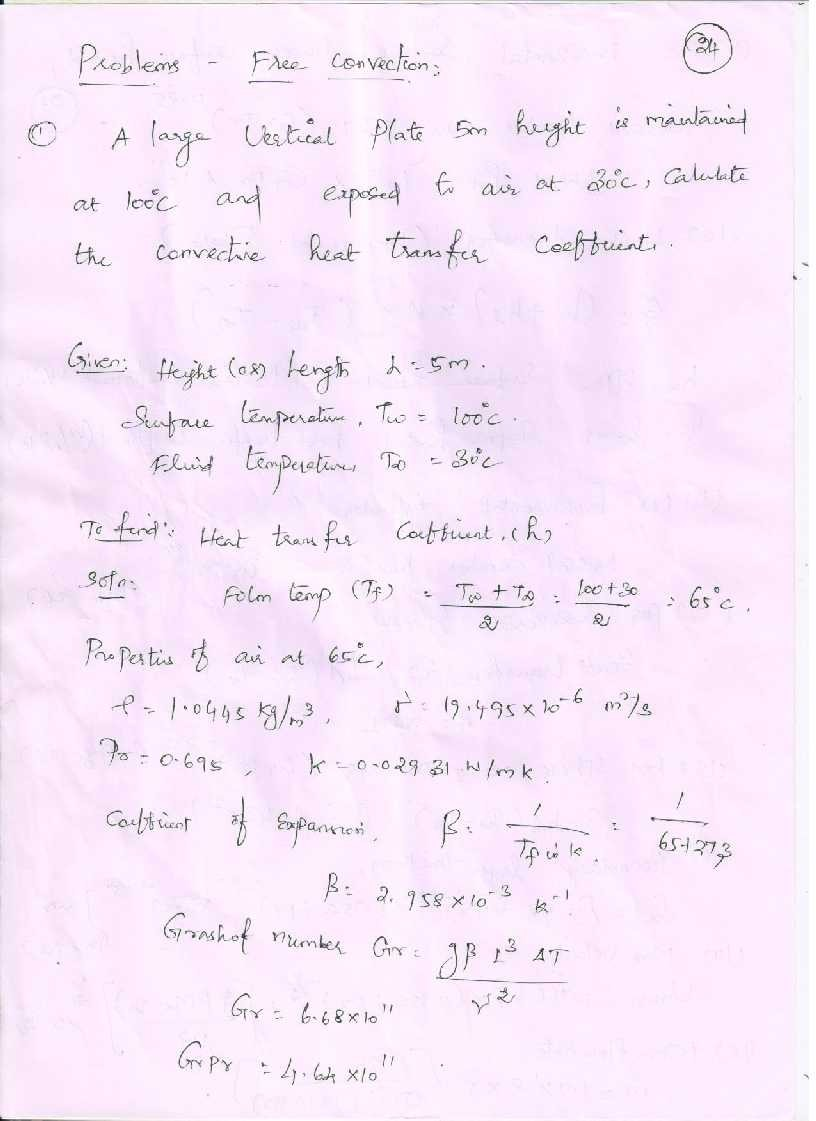 24
Problems - Free Convection:
① A large Vertical Plate 5m height is maintained
at 100°C and exposed to air at 30°C, Calculate
the convective heat transfer Coefficient.
Given: Height (or) Length L = 5m.
Surface temperature, Tw = 100°C.
Fluid temperature, T∞ = 30°C
To find: Heat transfer Coefficient, (h)
Soln: Film temp (Tf) = Tw + T∞ / 2 = 100+30 / 2 = 65°C.
Properties of air at 65°C,
ρ = 1.0445 kg/m³, ν = 19.495 × 10⁻⁶ m²/s
Pr = 0.695, K = 0.02931 W/mk.
Coefficient of Expansion, β = 1 / Tf in k. = 1 / 65+273
β = 2.958 × 10⁻³ k⁻¹
Grashof number Gr = gβ L³ ΔT / ν²
Gr = 6.68×10¹¹
GrPr = 4.64 ×10¹¹.